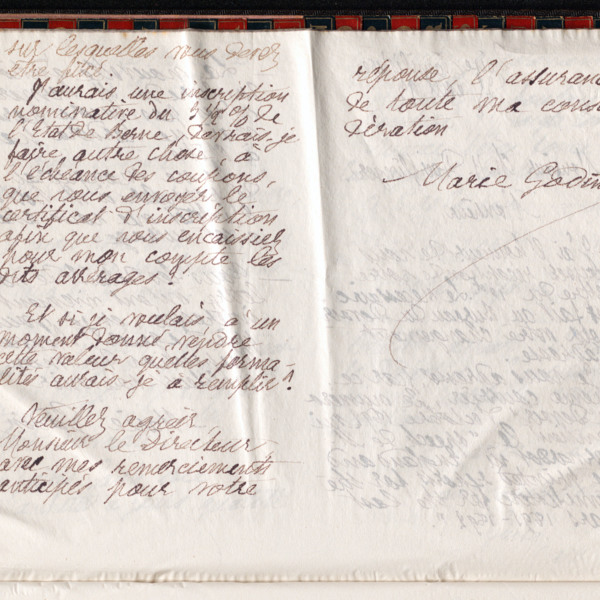 sur lesquelles vous devez
être fixé.
J'aurais une inscription
nominative du 3 ½ % de
l'Etat de Berne, devrais-je
faire autre chose, à
l'échéance des coupons,
que vous envoyer le
certificat d'inscription
afin que vous encaissiez
pour mon compte les
dits
Et si je voulais à un
moment donné, vendre
cette valeur quelles forma-
lités aurais-je à remplir?
Veuillez agréer
Monsieur le Directeur
avec mes remerciements
anticipés pour votre
réponse, l'assuranc
de toute ma cons
dération
Marie